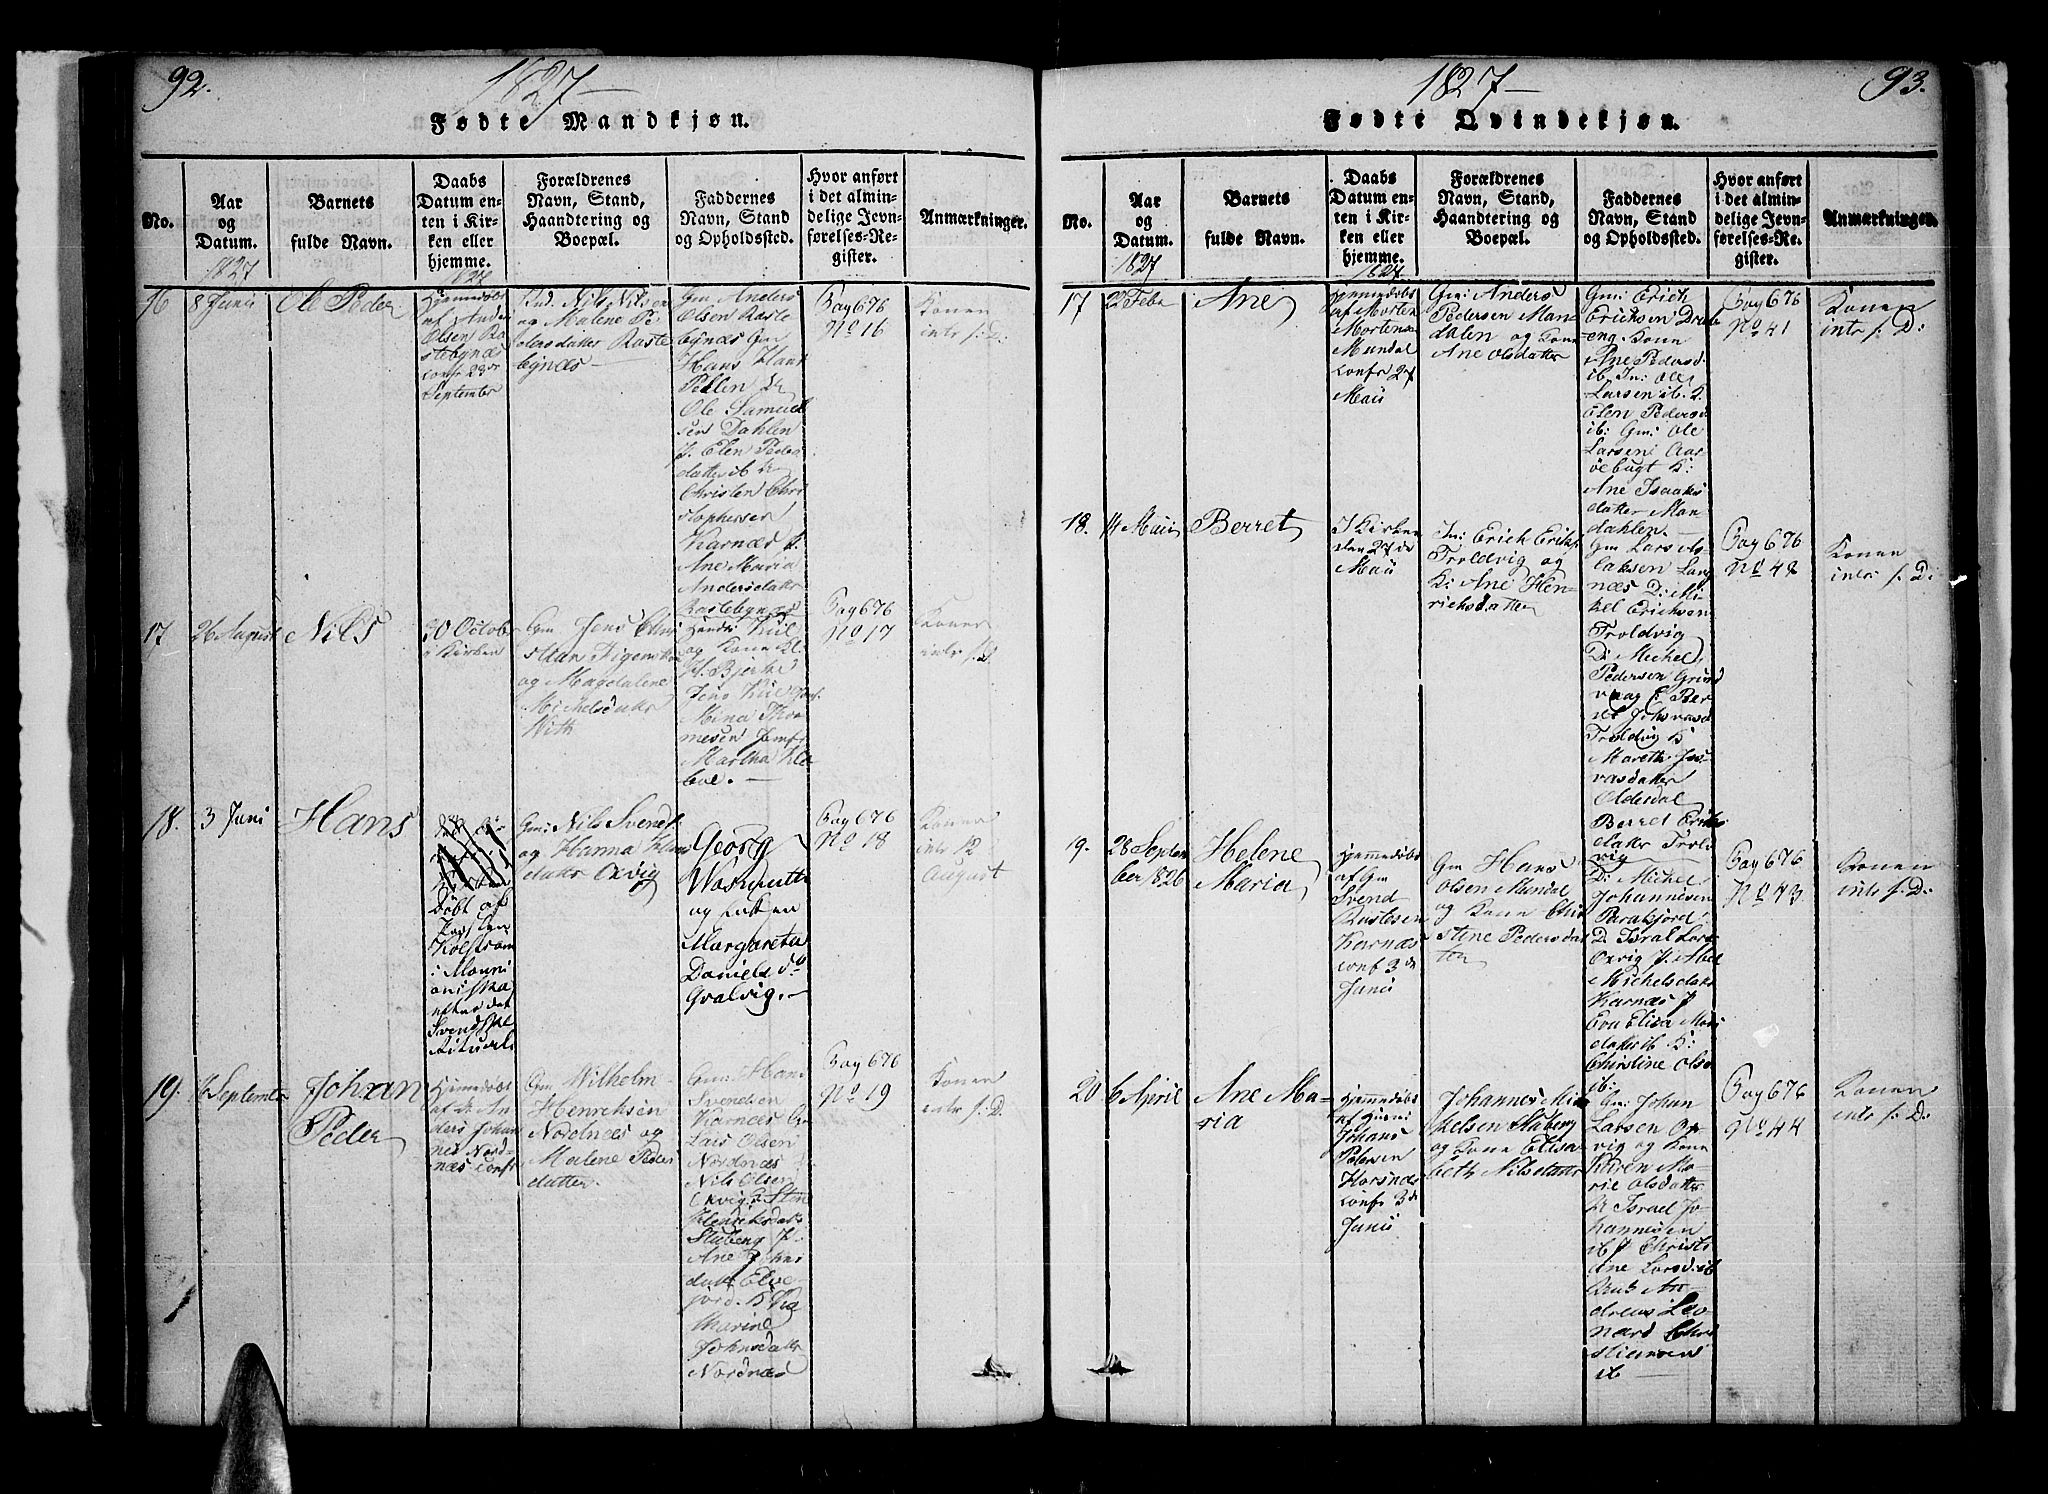 92.
1827
Fødte Mandkjøn.
No.
Aar
og
Datum.
1827
Barnets
fulde Navn.
Daabs
Datum en-
ten i Kir-
ken eller
hjemme.
1827
Forældrenes
Navn, Stand,
Haandtering og
Boepæl.
Faddernes
Navn, Stand
og Opholdssted.
Hvor anført
i det almin-
delige Jevn-
førelses-Re-
gister.
Anmærkninger.
16
8 Junii
Ole Peder
Hjemmedøbt
af Anders
Olsen Ra
stebynæs
conf 23de
September
Nils Nilsen
og Malene Pe
dersdatter Raste
bynæs
Gm Anders
Olsen Raste
bynæs Gm
Hans Hans
Ole Samuel
sen Dahlen
J. Elen Peder
datter ib
Christen Chri
stophersen
Karnæs J.
Ane Maria
Andersdatter
Rastebynæs
Pag 676
No 16
Konen
intr s: D:
17
26 August
Nils
30 Octobr
i Kirken
Gm Jens Chri
stian Figenskou
og Magdalene
Michelsdatter
With
Handm Kiil
og Kone
Jens Kiil
Mina Tho
mesen Jomfr
Martha Kla
boe.
Pag 676
No 17
Konen
intr s: D.
18.
3 Juni
Hans
Døbt af
Pastor
Kolstrøm
i Mouni
oniska
efter det
Svendske
Ritual
Gm: Nils Svends:
og Hanna Hans
datter Oxvig
Georg
Wasmuth
og
Margareta
Daniels do
Qvalvig.
Pag 676
No 18
Konen
intr 12
August
19.
16 September
Johan
Peder
Hjemmedøbt
af An
ders Johan
nes Nord-
næs conf
Gm Wilhelm
Henriksen
Nordnæs og
Malene Peder
datter.
Gm: Hans
Svendsen
Karnæs Gm
Lars Olsen
Nordnæs
Nils Olsen
Oxvig Stine
Henriksdatter
Skuberg J.
Ane Johns
datter Elve
jord. K Ka
tharine
Johnsdatter
Nordnæs
Pag 676
No 19
Konen
intr s: D.
93.
1827
Fødte Qvindekjøn.
No.
Aar
og
Datum.
1827
Barnets
fulde Navn.
Daabs
Datum en-
ten i Kir-
ken eller
hjemme.
1827
Forældrenes
Navn, Stand,
Haandtering og
Boepæl.
Faddernes
Navn, Stand
og Opholdssted.
Hvor anført
i det almin-
delige Jevn-
førelses-Re-
gister.
Anmærkninger.
17
22 Febr
Ane
Hjemmedøbt
af Morten
Mortensen
Mundal
conf 27
Maii
Gm: Anders
Pedersen Man-
dalen og Kone
Ane Olsdatter
Gm: Erich
Erichsen Drab
eng. Kone
Ane Pedersd
ib. Jn: Ole
Larsen ib. K.
Elen Pedersd
ib: Gm: Ole
Larsen Aar
øebugt K:
Ane Isaaks
datter Man
dahlen.
Pag 676
No 41
Konen
intr s: D:
18.
14 Maii
Berret
I Kirken
den 27de
Maii
Jn: Erich Eriks:
Troldvig og
K: Ane Hen-
richsdatter
Gm Lars As-
laksen Lang
næs D: Mi
kel Erichsen
Troldvig
D: Michel
Pedersen Grund
vaag K Ber-
ret
Troldvig K
Mareth Jos-
vasdatter
Oldesdal
Berret Eriks
datter Trold
vig
Pag 676
No 42
Konen
intr s: D:
19.
28 Septem
ber 1826
Helene
Maria
Hjemmedøbt
af Gm
Svend
Karnæs
conf 3de
Junii
Gm Hans
Olsen Mundal
og Kone Chri
stine Pedersdat
ter
D: Michel
Johannesen
Parakjord
D. Isral Lars
Oxvig J. Abel
Michelsdatter
Karnæs J
Eva Elisa
datter ib K:
Christine Ols
ib:
Pag 676
No 43
Konen
intr s: D:
20
6 April
Ane Ma-
ria
Hjemmedøbt
af Gm
Johans
Petersen
Horsnæs
conf 3de
Junii
Johannes Mic
kelsen Skuberg
og Kone Elisa
beth Nilsdatter
Gm: Johan
Larsen Ox
vig og Kone
Karen Ma-
rie Olsdatter
D Israel Jo
hannesen
ib J Christi
Ane Larsd: ib
An
dreas Leo
nard Chri
stiansen
ib
Pag 676
No 44
Konen
intr s: D: